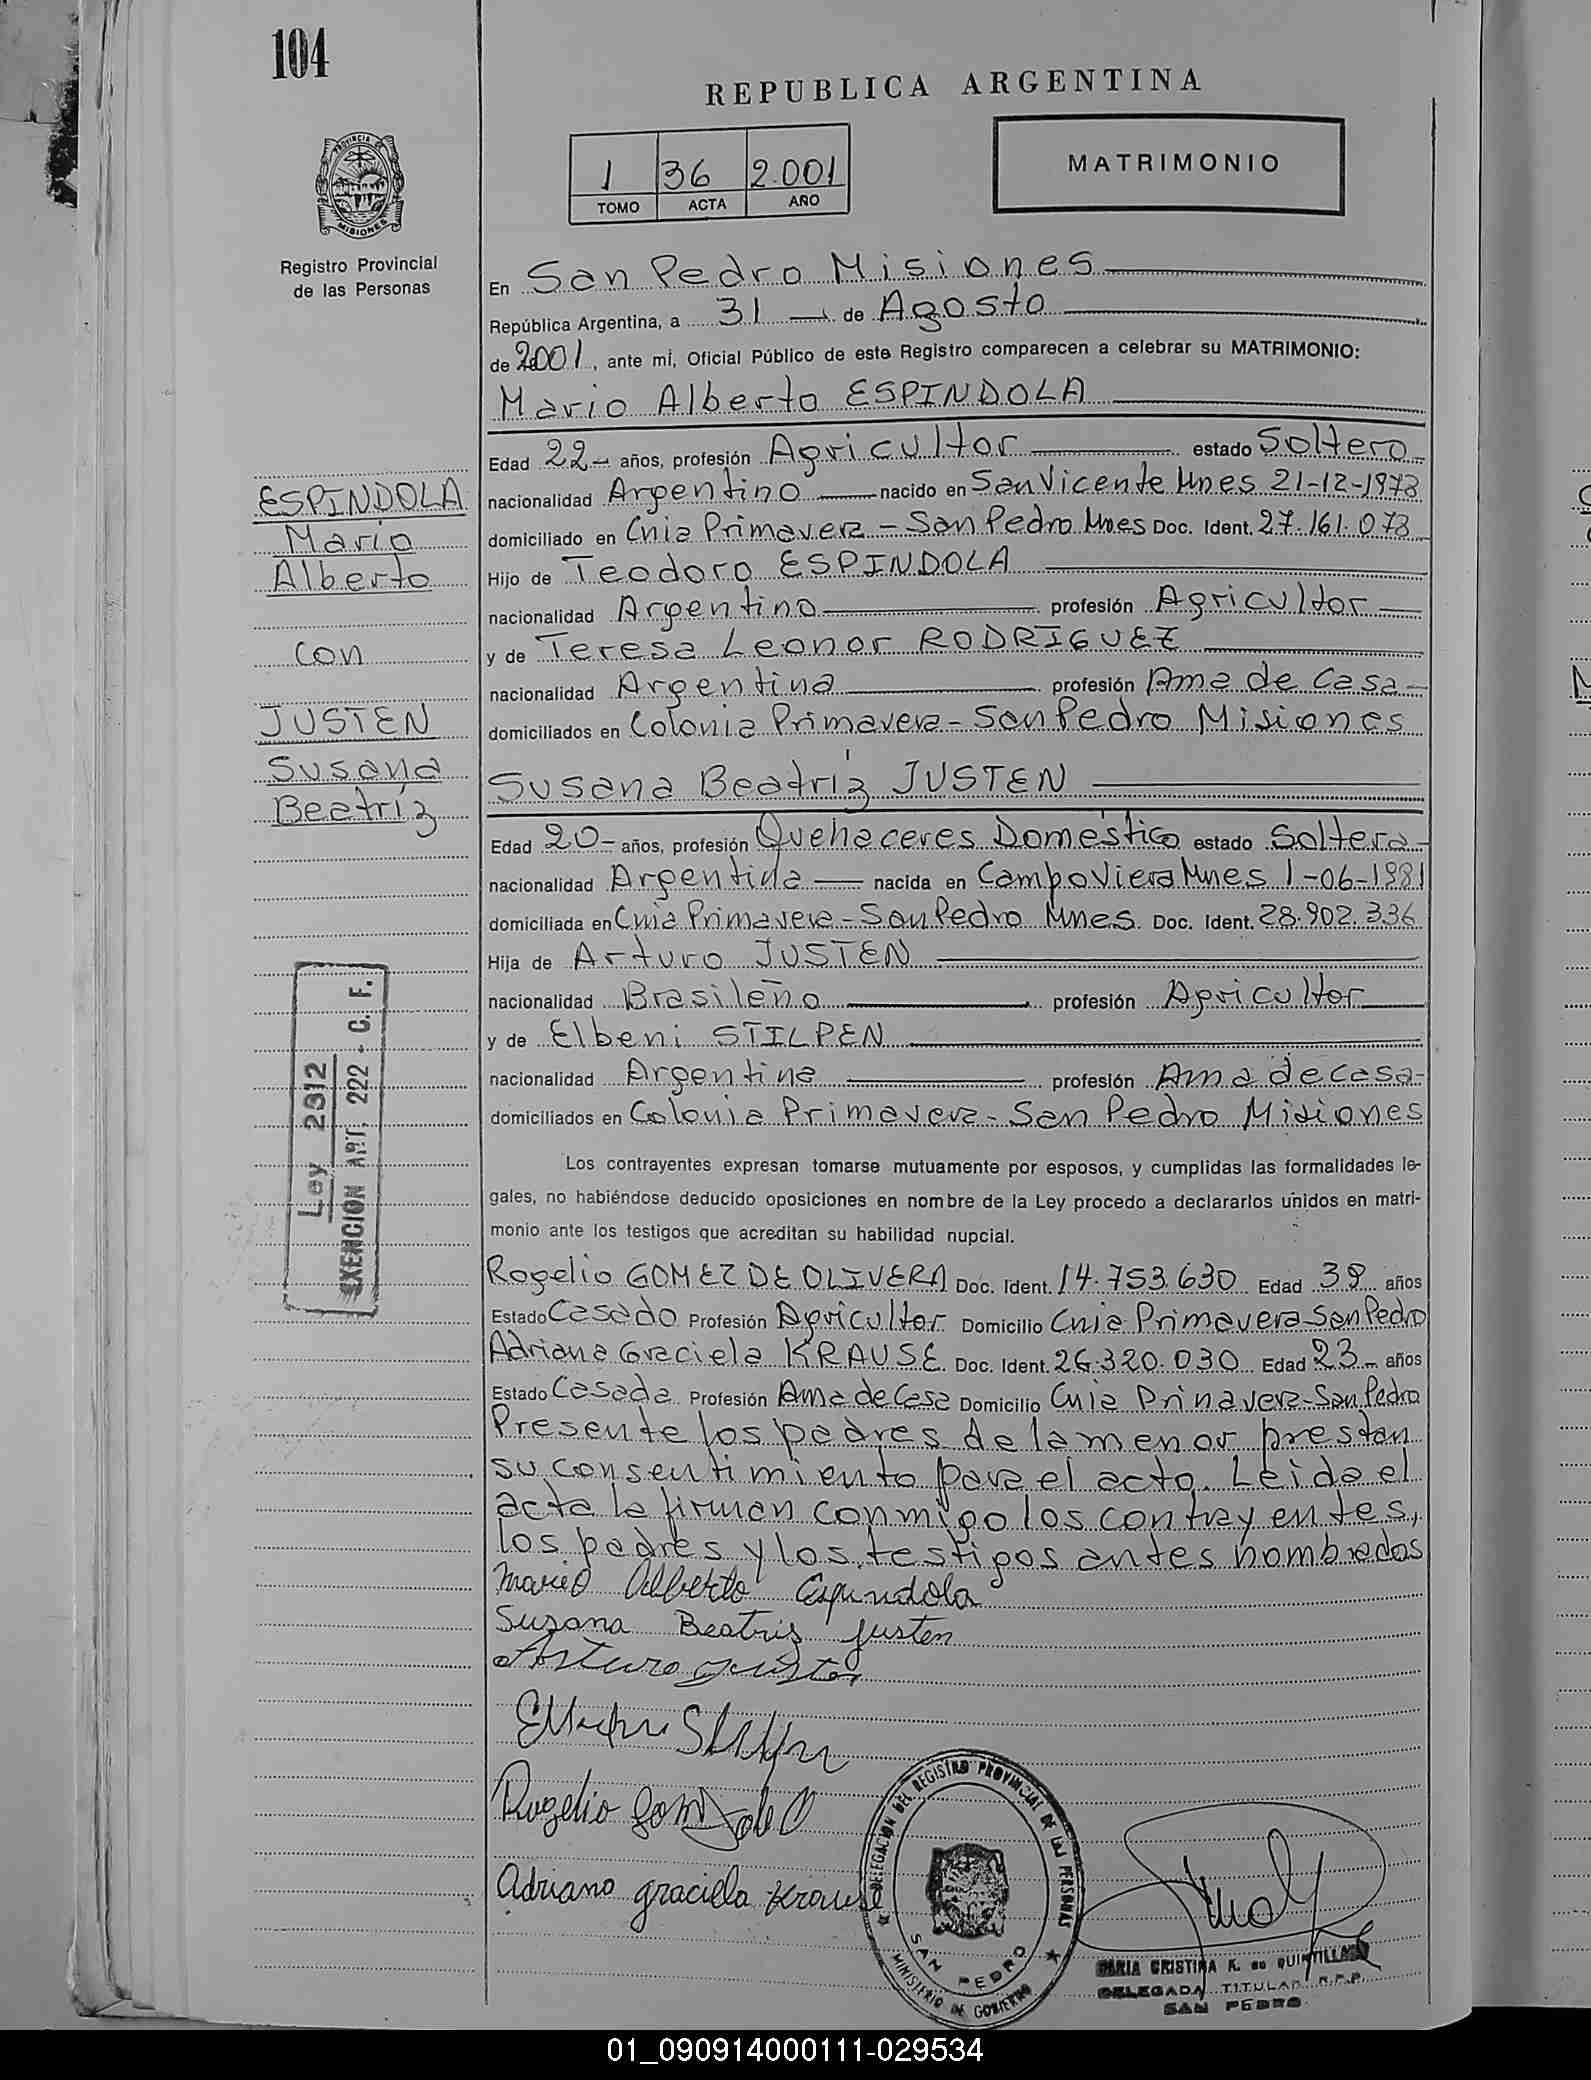 104
REPUBLICA ARGENTINA
1 36 2.001
TOMO ACTA AÑO
MATRIMONIO
PROVINCIA DE
MISIONES
Registro Provincial
de las Personas
En San Pedro Misiones
República Argentina, a 31 de Agosto
de 2001, ante mi, Oficial Público de este Registro comparecen a celebrar su MATRIMONIO:
Mario Alberto ESPINDOLA
Edad 22 años, profesión Agricultor estado Soltero
nacionalidad Argentino nacido en San Vicente Mnes 21-12-1978
domiciliado en Cnia Primavera - San Pedro Mnes Doc. Ident. 27.161.073
Hijo de Teodoro ESPINDOLA
nacionalidad Argentino profesión Agricultor
y de Teresa Leonor RODRIGUEZ
nacionalidad Argentina profesión Ama de Casa
domiciliados en Colonia Primavera - San Pedro Misiones
ESPINDOLA
Mario
Alberto
con
JUSTEN
Susana
Beatríz
Susana Beatríz JUSTEN
Edad 20 años, profesión Quehaceres Doméstico estado Soltera
nacionalidad Argentina nacida en Campo Viera Mnes 1-06-1981
domiciliada en Cnia Primavera - San Pedro Mnes. Doc. Ident. 28.902.336
Hija de Arturo JUSTEN
nacionalidad Brasileño profesión Agricultor
y de Elbeni STILPEN
nacionalidad Argentina profesión Ama de casa
domiciliados en Colonia Primavera - San Pedro Misiones
Ley 2312
EXENCION ART. 222 - C. F.
Los contrayentes expresan tomarse mutuamente por esposos, y cumplidas las formalidades le-
gales, no habiéndose deducido oposiciones en nombre de la Ley procedo a declararlos unidos en matri-
monio ante los testigos que acreditan su habilidad nupcial.
Rogelio GOMEZ DE OLIVERA Doc. Ident. 14.753.630 Edad 38 años
Estado Casado Profesión Agricultor Domicilio Cnia Primavera-San Pedro
Adriana Graciela KRAUSE. Doc. Ident. 26.320.030 Edad 23 años
Estado Casada Profesión Ama de Casa Domicilio Cnia Prinavera-San Pedro
Presente los padres de la menor prestan
su consentimiento para el acto. Leida el
acta la firman conmigo los contrayentes,
los padres y los testigos antes nombrados
Mario Alberto Espindola
Suzana Beatris Justen
Arturo Justen
Rogelio Gom
Adriano graciela Krause
DELEGACION DEL REGISTRO PROVINCIAL DE LAS PERSONAS
SAN PEDRO
MINISTERIO DE GOBIERNO
MARIA CRISTINA K. de QUINTILLAN
DELEGADA TITULAR R.P.P.
SAN PEDRO
01_090914000111-029534